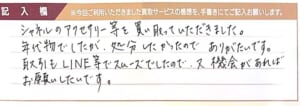 記入欄 ※今回ご利用いただきました買取サービスの感想を、手書きにてご記入お願いします。
シャネルのアクセサリー等を買い取っていただきました。
年代物でしたが、処分したかったので ありがたいです。
取引もLINE等でスムーズでしたので、又 機会があれば
お願いしたいです。